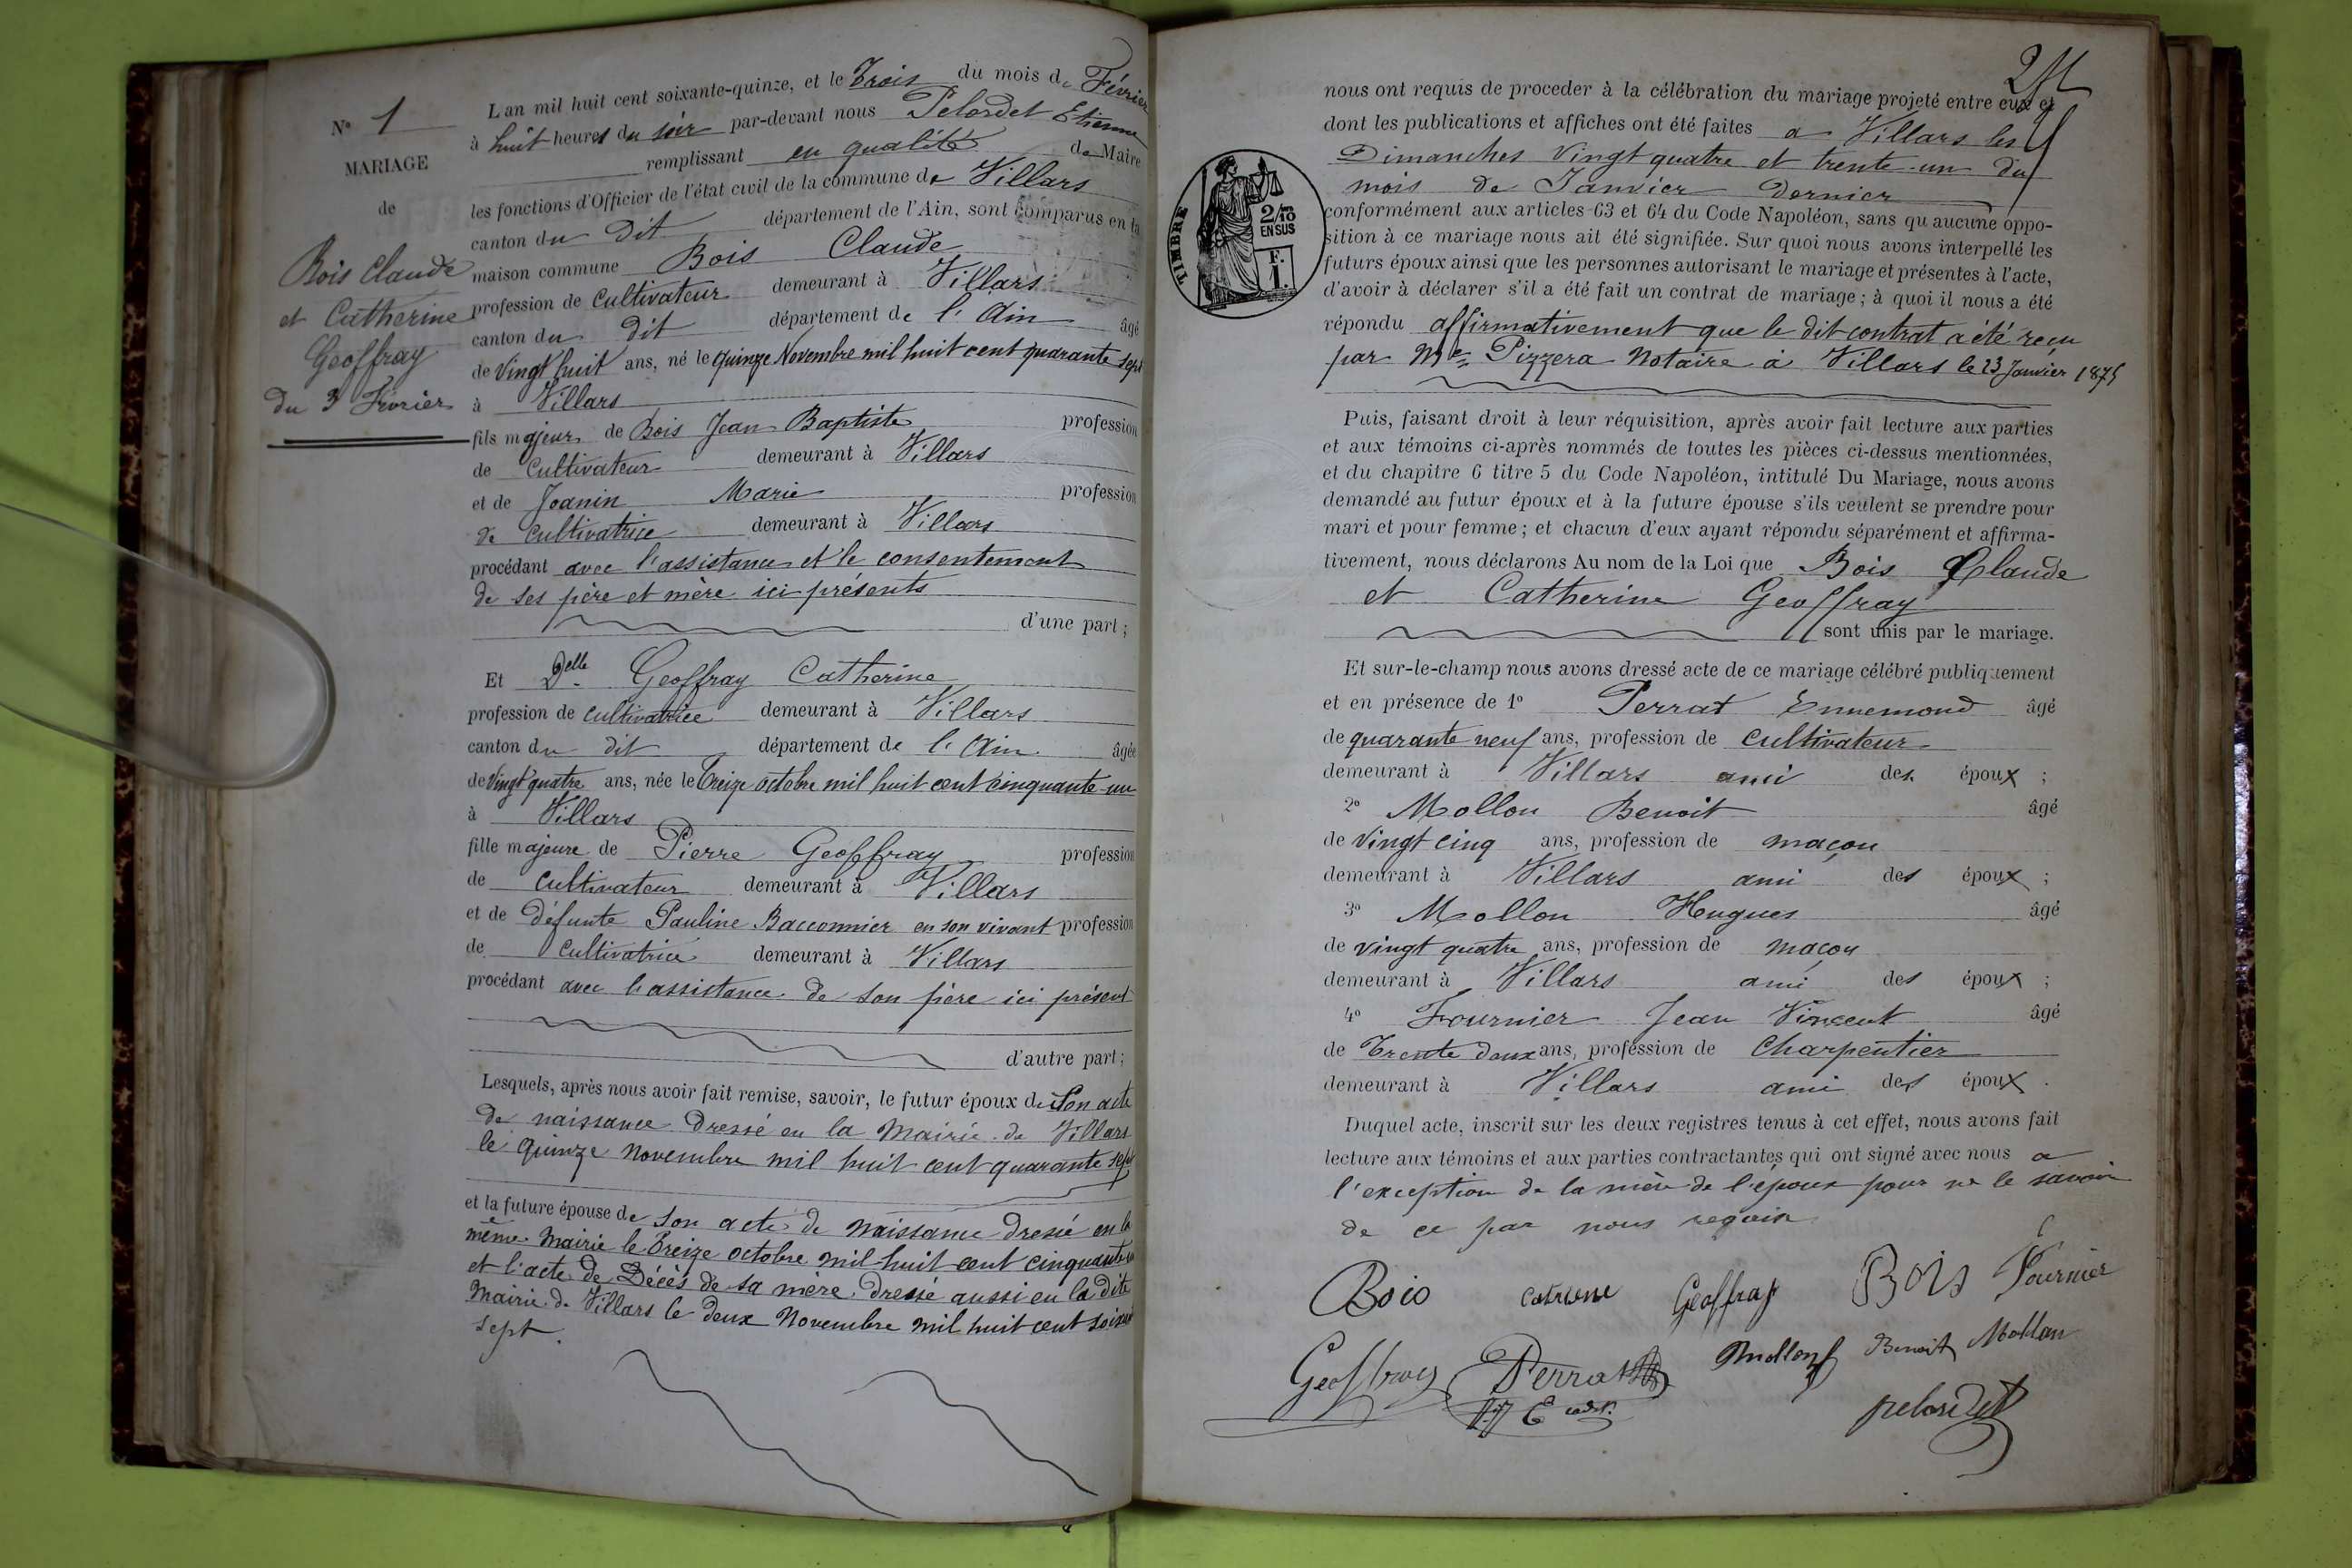 L'an mil huit cent soixante-quinze, et le Trois du mois de Février
à huit heures du soir par-devant nous Pelordet Etienne
remplissant en qualité de Maire
les fonctions d'Officier de l'état civil de la commune de Villars
canton du dit département de l'Ain, sont comparus en la
maison commune Bois Claude
profession de cultivateur demeurant à Villars
canton du dit département de l'Ain âgé
de vingt huit ans, né le quinze Novembre mil huit cent quarante sept
à Villars
fils majeur de Bois Jean Baptiste profession
de cultivateur demeurant à Villars
et de Joanin Marie profession
de cultivatrice demeurant à Villars
procédant avec l'assistance et le consentement
de ses père et mère ici présents
d'une part;
Et Delle Geoffray Catherine
profession de cultivatrice demeurant à Villars
canton du dit département de l'Ain. âgée
de vingt quatre ans, née le Treize octobre mil huit cent cinquante-un
à Villars
fille majeure de Pierre Geoffray profession
de cultivateur demeurant à Villars
et de défunte Pauline Bacconnier en son vivant profession
de cultivatrice demeurant à Villars
procédant avec l'assistance de son père ici présent
d'autre part;
Lesquels, après nous avoir fait remise, savoir, le futur époux de son acte
de naissance dressé en la Mairie de Villars
le quinze novembre mil huit cent quarante sept
et la future épouse de son acte de naissance dressé en la
même Mairie le treize octobre mil huit cent cinquante un
et l'acte de Décès de sa mère dressé aussi en la dite
Mairie de Villars le deux Novembre mil huit cent soixante
sept.
N° 1
MARIAGE
de
Bois Claude
et Catherine
Geoffray
du 3 Février
nous ont requis de proceder à la célébration du mariage projeté entre eux et
dont les publications et affiches ont été faites a Villars les
Dimanches vingt quatre et trente-un du
mois de Janvier dernier
conformément aux articles 63 et 64 du Code Napoléon, sans qu'aucune oppo-
sition à ce mariage nous ait été signifiée. Sur quoi nous avons interpellé les
futurs époux ainsi que les personnes autorisant le mariage et présentes à l'acte,
d'avoir à déclarer s'il a été fait un contrat de mariage; à quoi il nous a été
répondu affirmativement que le dit contrat a été reçu
par Me Pizzera Notaire à Villars le 23 Janvier 1875
Puis, faisant droit à leur réquisition, après avoir fait lecture aux parties
et aux témoins ci-après nommés de toutes les pièces ci-dessus mentionnées,
et du chapitre 6 titre 5 du Code Napoléon, intitulé Du Mariage, nous avons
demandé au futur époux et à la future épouse s'ils veulent se prendre pour
mari et pour femme; et chacun d'eux ayant répondu séparément et affirma-
tivement, nous déclarons Au nom de la Loi que Bois Claude
et Catherine Geoffray
sont unis par le mariage.
Et sur-le-champ nous avons dressé acte de ce mariage célébré publiquement
et en présence de 1° Perrat Ennemond âgé
de quarante neuf ans, profession de cultivateur
demeurant à Villars ami des époux;
2° Mollon Benoit âgé
de vingt cinq ans, profession de maçon
demeurant à Villars ami des époux;
3° Mollon Hugues âgé
de vingt quatre ans, profession de maçon
demeurant à Villars ami des époux;
4° Fournier Jean Vincent âgé
de Trente deux ans, profession de charpentier
demeurant à Villars ami des époux.
Duquel acte, inscrit sur les deux registres tenus à cet effet, nous avons fait
lecture aux témoins et aux parties contractantes qui ont signé avec nous a
l'exception de la mère de l'époux pour ne le savoir
de ce par nous requise
Bois Catherine Geoffray Bois Fournier
Geoffray Perrat Mollon Benoit Mollon
pelordet
TIMBRE
2/10 EN SUS
F. 1.